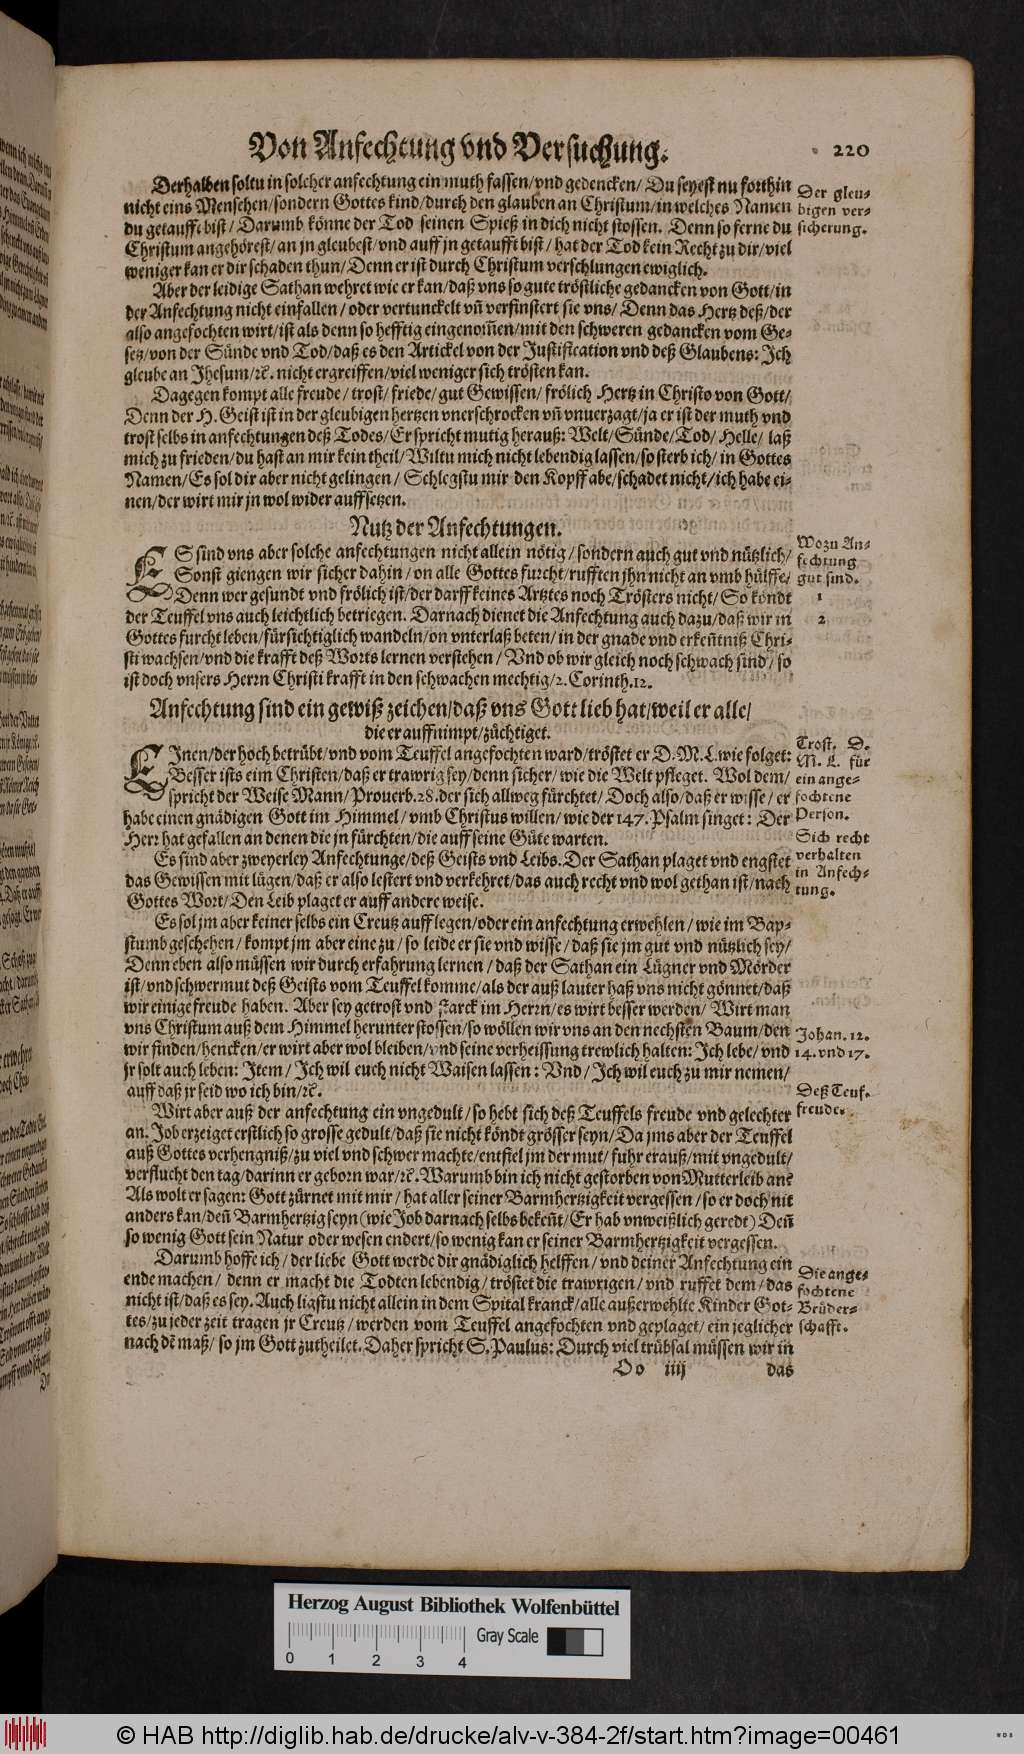 Von Anfechtung vnd Versuchung. 220
Derhalben soltu in solcher anfechtung ein muth fassen/vnd gedencken/ Du seyest nu forthin
nicht eins Menschen/sondern Gottes kind/durch den glauben an Christum/in welches Namen
du getaufft bist/ Darumb könne der Tod seinen Spieß in dich nicht stossen. Denn so ferne du
Christum angehörest/an jn gleubest/vnd auff jn getaufft bist/ hat der Tod kein Recht zu dir/viel
weniger kan er dir schaden thun/Denn er ist durch Christum verschlungen ewiglich.
Der gleu-
bigen ver-
sicherung.
Aber der leidige Sathan wehret wie er kan/daß vns so gute tröstliche gedancken von Gott/in
der Anfechtung nicht einfallen/oder vertunckelt vn̄ verfinstert sie vns/ Denn das Hertz deß/der
also angefochten wirt/ist als denn so hefftig eingenom̄en/mit den schweren gedancken vom Ge-
setz/von der Sünde vnd Tod/daß es den Artickel von der Justification vnd deß Glaubens: Ich
gleube an Jhesum/ꝛc̄. nicht ergreiffen/viel weniger sich trösten kan.
Dagegen kompt alle freude/ trost/ friede/ gut Gewissen/ frölich Hertz in Christo von Gott/
Denn der H. Geist ist in der gleubigen hertzen vnerschrocken vn̄ vnuerzagt/ja er ist der muth vnd
trost selbs in anfechtungen deß Todes/Er spricht mutig herauß: Welt/Sünde/Tod/ Helle/ laß
mich zu frieden/du hast an mir kein theil/Wiltu mich nicht lebendig lassen/so sterb ich/ in Gottes
Namen/Es sol dir aber nicht gelingen/ Schlegstu mir den Kopff abe/schadet nicht/ich habe ei-
nen/der wirt mir jn wol wider auffsetzen.
Nutz der Anfechtungen.
ES sind vns aber solche anfechtungen nicht allein nötig/sondern auch gut vnd nützlich/
Sonst giengen wir sicher dahin/on alle Gottes furcht/rufften jhn nicht an vmb hülffe/
Denn wer gesundt vnd frölich ist/der darff keines Artztes noch Trösters nicht/So köndt
der Teuffel vns auch leichtlich betriegen. Darnach dienet die Anfechtung auch dazu/daß wir in
Gottes furcht leben/fürsichtiglich wandeln/on vnterlaß beten/in der gnade vnd erkeñtniß Chri-
sti wachsen/vnd die krafft deß Worts lernen verstehen/ Vnd ob wir gleich noch schwach sind/so
ist doch vnsers Herrn Christi krafft in den schwachen mechtig/2. Corinth. 12.
Wozu An-
fechtung
gut sind.
1
2
Anfechtung sind ein gewiß zeichen/daß vns Gott lieb hat/weil er alle/
die er auffnimpt/züchtiget.
EInen/der hoch betrübt/vnd vom Teuffel angefochten ward/tröstet er D. M. L. wie folget:
Besser ists eim Christen/daß er trawrig sey/denn sicher/wie die Welt pfleget. Wol dem/
spricht der Weise Mann/Prouerb. 28. der sich allweg fürchtet/ Doch also/daß er wisse/ er
habe einen gnädigen Gott im Himmel/ vmb Christus willen/wie der 147. Psalm singet: Der
Herr hat gefallen an denen die jn fürchten/die auff seine Güte warten.
Trost. D.
M. L. für
ein ange-
fochtene
Person.
Es sind aber zweyerley Anfechtunge/deß Geists vnd Leibs. Der Sathan plaget vnd engstet
das Gewissen mit lügen/daß er also lestert vnd verkehret/das auch recht vnd wol gethan ist/nach
Gottes Wort/Den Leib plaget er auff andere weise.
Sich recht
verhalten
in Anfech-
tung.
Es sol jm aber keiner selbs ein Creutz aufflegen/oder ein anfechtung erwehlen/ wie im Bap-
stumb geschehen/ kompt jm aber eine zu/so leide er sie vnd wisse/daß sie jm gut vnd nützlich sey/
Denn eben also müssen wir durch erfahrung lernen/ daß der Sathan ein Lügner vnd Mörder
ist/vnd schwermut deß Geists vom Teuffel komme/als der auß lauter haß vns nicht gönnet/daß
wir einige freude haben. Aber sey getrost vnd starck im Herrn/es wirt besser werden/ Wirt man
vns Christum auß dem Himmel herunter stossen/so wöllen wir vns an den nechsten Baum/den
wir finden/hencken/er wirt aber wol bleiben/vnd seine verheissung trewlich halten: Ich lebe/ vnd
jr solt auch leben: Item/ Ich wil euch nicht Waisen lassen: Vnd/Ich wil euch zu mir nemen/
auff daß jr seid wo ich bin/ꝛc̄.
Johan. 12.
14. vnd 17.
Wirt aber auß der anfechtung ein vngedult/so hebt sich deß Teuffels freude vnd gelechter
an. Job erzeiget erstlich so grosse gedult/daß sie nicht köndt grösser seyn/Da jms aber der Teuffel
auß Gottes verhengniß/zu viel vnd schwer machte/entfiel jm der mut/fuhr erauß/mit vngedult/
verflucht den tag/darinn er geborn war/ꝛc̄. Warumb bin ich nicht gestorben von Mutterleib an?
Als wolt er sagen: Gott zürnet mit mir/hat aller seiner Barmhertzigkeit vergessen/so er doch nit
anders kan/deñ Barmhertzig seyn (wie Job darnach selbs bekeñt/Er hab vnweißlich geredt) Deñ
so wenig Gott sein Natur oder wesen endert/so wenig kan er seiner Barmhertzigkeit vergessen.
Deß Teuf.
freude.
Darumb hoffe ich/der liebe Gott werde dir gnädiglich helffen/vnd deiner Anfechtung ein
ende machen/ denn er macht die Todten lebendig/tröstet die trawrigen/vnd ruffet dem/das
nicht ist/daß es sey. Auch ligstu nicht allein in dem Spital kranck/alle außerwehlte Kinder Got-
tes/zu jeder zeit tragen jr Creutz/werden vom Teuffel angefochten vnd geplaget/ein jeglicher
nach dē maß/ so jm Gott zutheilet. Daher spricht S. Paulus: Durch viel trübsal müssen wir in
Die ange-
fochtene
Brüder-
schafft.
Oo iiij das
Herzog August Bibliothek Wolfenbüttel
0 1 2 3 4 Gray Scale
© HAB http://diglib.hab.de/drucke/alv-v-384-2f/start.htm?image=00461